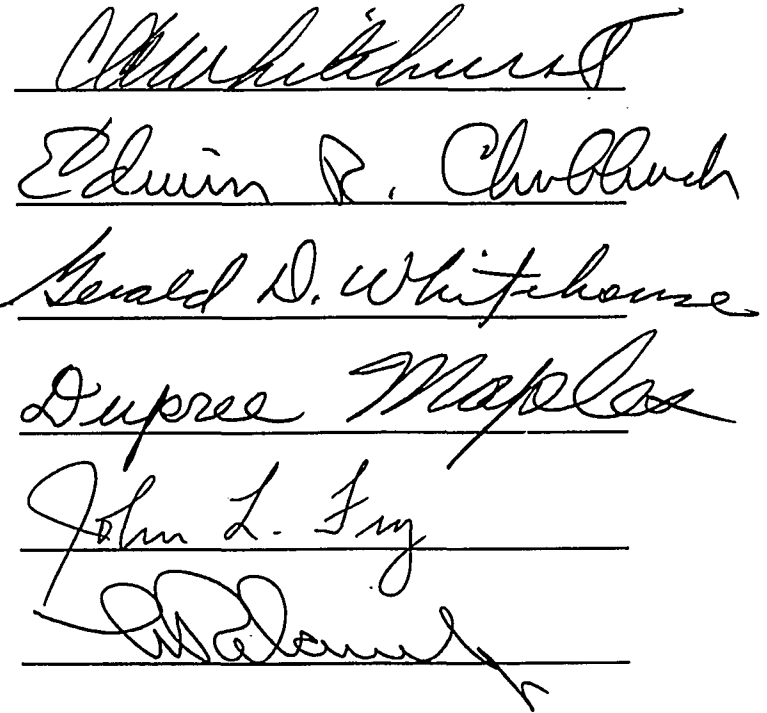 Whitehurst
Edwin R. Chubbuck
Gerald D. Whitehouse
Dupree Maples
John L. Fry